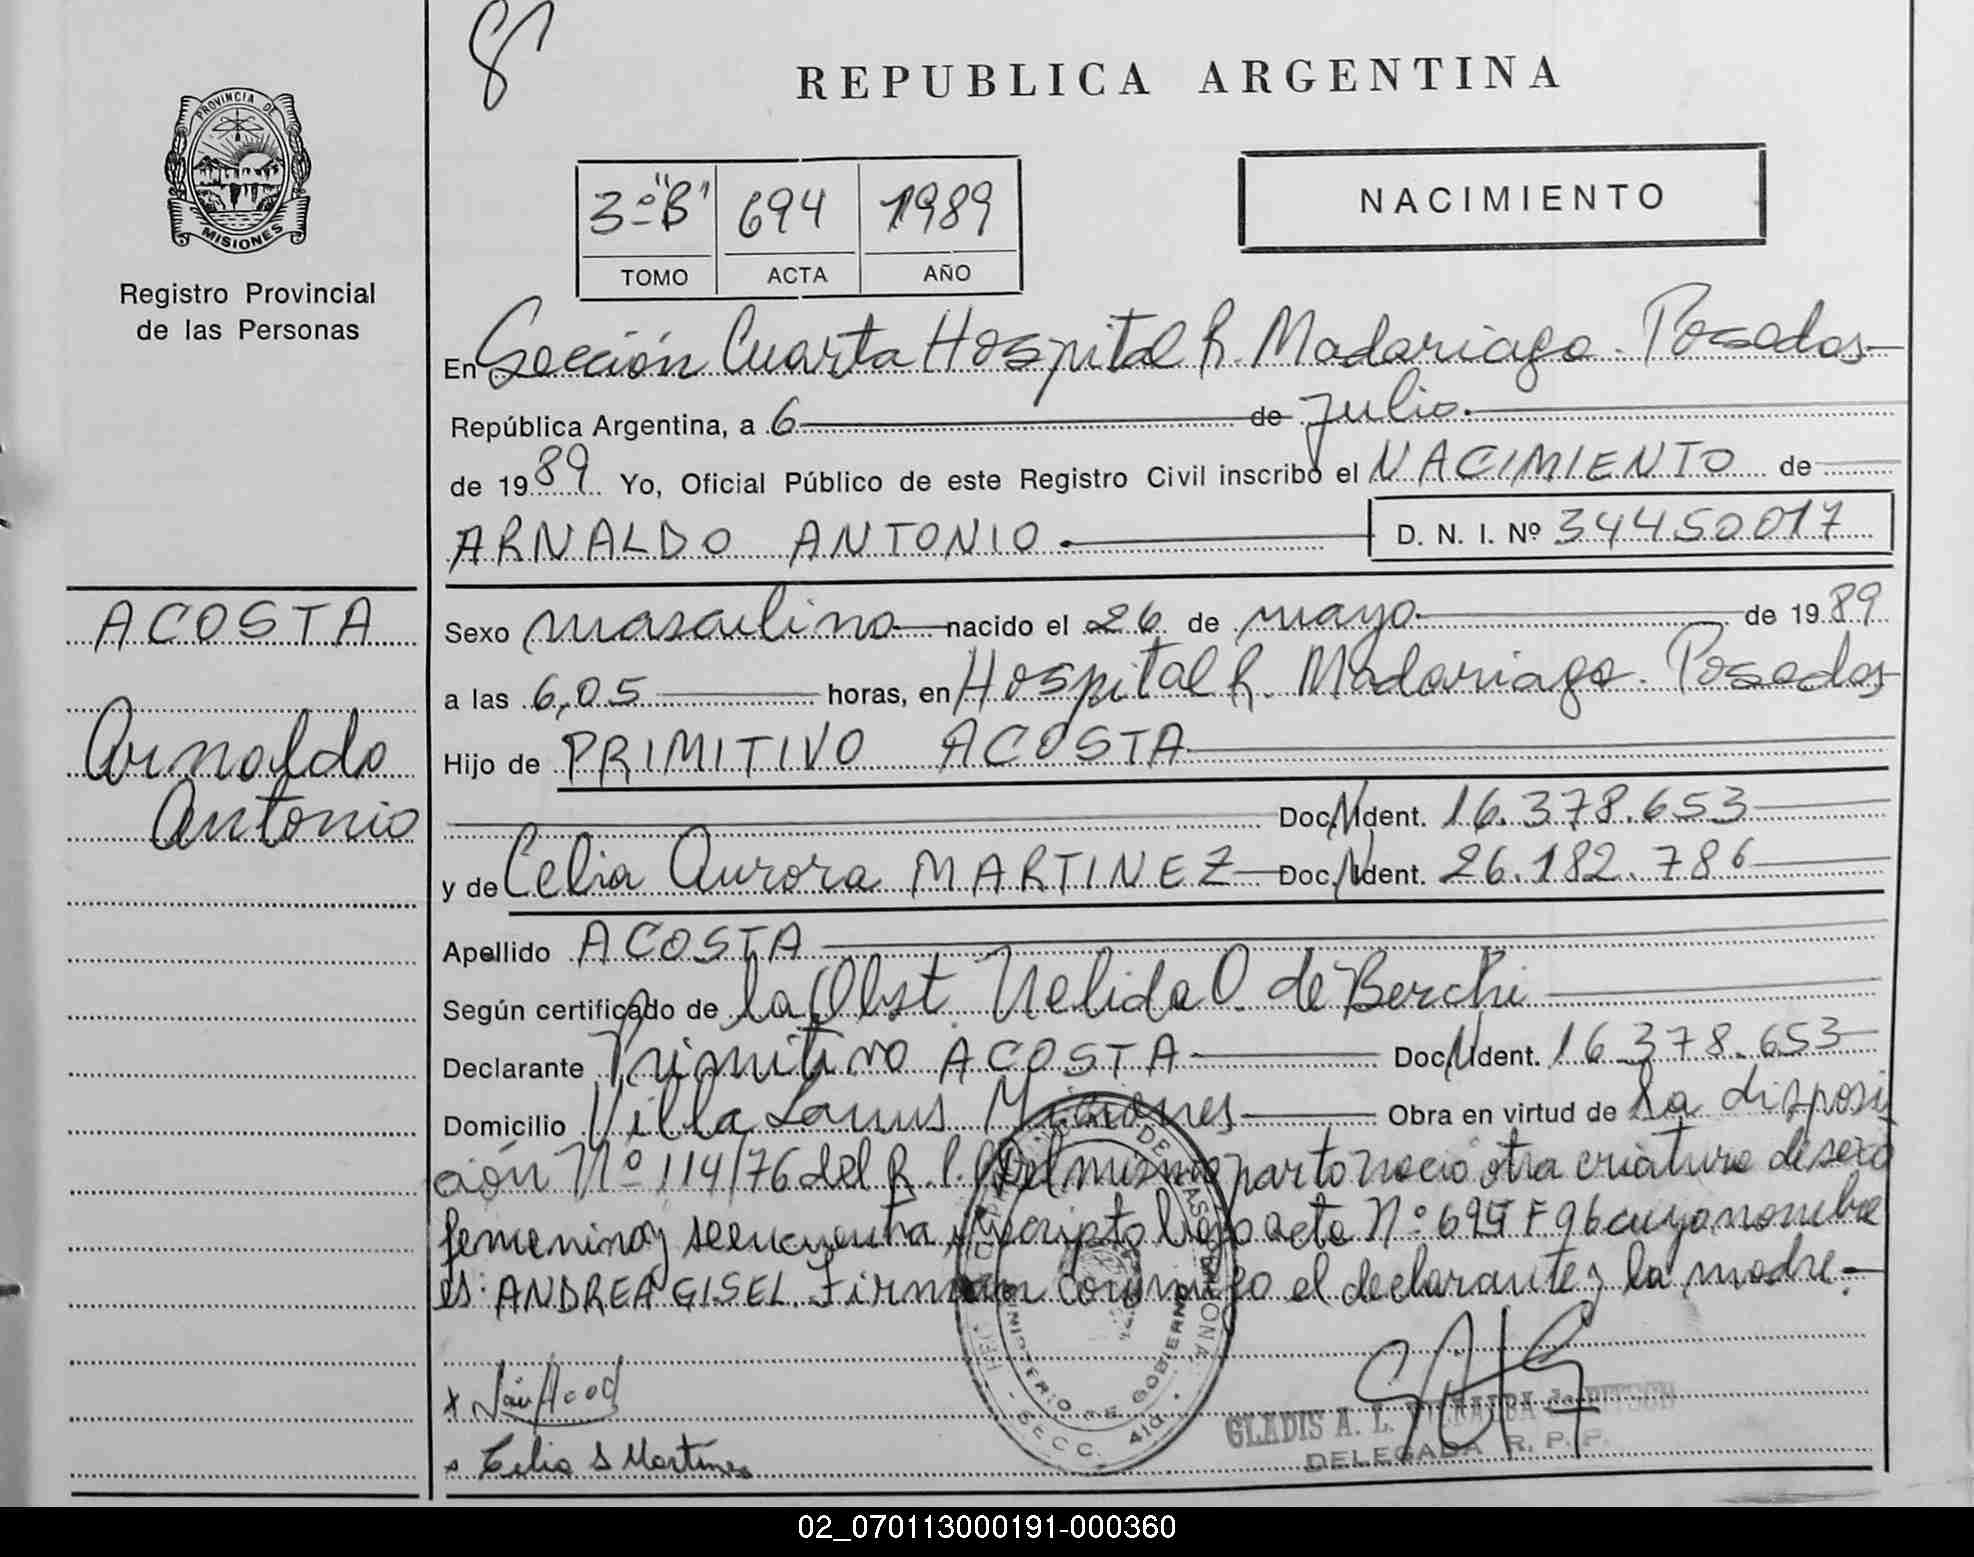 REPUBLICA ARGENTINA
PROVINCIA DE
MISIONES
Registro Provincial
de las Personas
3º "B" 694 1989
TOMO ACTA AÑO
NACIMIENTO
En Sección Cuarta Hospital R. Madariaga. Posadas
República Argentina, a 6 de julio.
de 1989 Yo, Oficial Público de este Registro Civil inscribo el NACIMIENTO de
ARNALDO ANTONIO. D. N. I. Nº 34450017
ACOSTA
Arnaldo
Antonio
Sexo masculino nacido el 26 de mayo de 1989
a las 6,05 horas, en Hospital R. Madariaga. Posadas
Hijo de PRIMITIVO ACOSTA
Doc. N Ident. 16.378.653
y de Celia Aurora MARTINEZ Doc. N Ident. 26.182.786
Apellido ACOSTA
Según certificado de la Obst. Nelida O. de Berchi
Declarante Primitivo ACOSTA Doc. N Ident. 16.378.653
Domicilio Villa Lanus Misiones Obra en virtud de la disposi
ción Nº 114/76 del R.P.P. Del mismo parto nacio otra criatura de sexo
femenino y se encuentra inscripto bajo acta Nº 695 F 96 cuyo nombre
es: ANDREA GISEL. Firman conmigo el declarante y la madre.-
x
x Celia A Martinez
MINISTERIO DE GOBIERNO
SECC. 4ta.
GLADIS A. L. VILLALBA de
DELEGADA R. P. P.
02_070113000191-000360